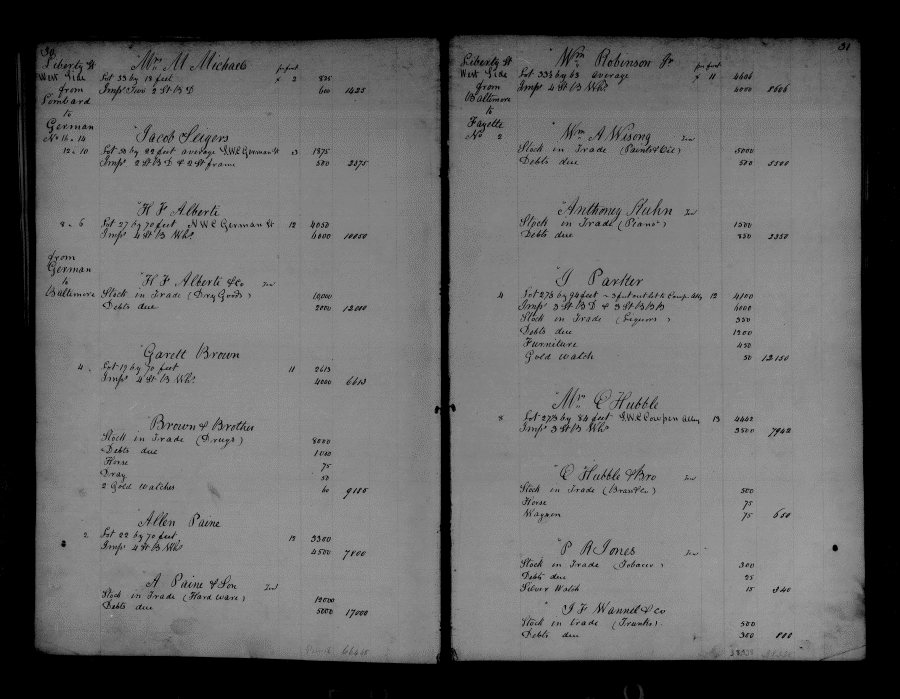 30
Liberty St
West Side
from
Lombard
to
German
No 16 - 14
Mrs M Michaels
per foot
Lot 33 by 18 feet x 2 825
Imps Two 2 St B D 600 1425
Jacob Seigers
12 - 10 Lot 28 by 22 feet average S.W.C German St 3 1875
Imps 2 St B D & 2 St frame 500 2375
H F Alberti
8 - 6 Lot 27 by 70 feet N W C German St 12 4050
Imps 4 St B Whs 6000 10050
from
German
to
Baltimore
H F Alberti & Co
Stock in Trade (Dry Goods) 10000
Debts due 2000 12000
Garett Brown
4 Lot 19 by 70 feet 11 2613
Imps 4 St B Whs 4000 6613
Brown & Brother
Stock in Trade (Drugs) 8000
Debts due 1000
Horse 75
Dray 50
2 Gold Watches 60 9185
Allen Paine
2 Lot 22 by 70 feet 15 3300
Imps 4 St B Whs 4500 7800
A Paine & Son
Stock in Trade (Hard ware) 12000
Debts due 5000 17000
31
Liberty St
West Side
from
Baltimore
to
Fayette
No 2
Wm Robinson Jr
per foot
Lot 33½ by 63 average x 11 4606
Imps 4 St B Whs 4000 8606
Wm A Wisong
Stock in Trade (Paints & Oil) 5000
Debts due 500 5500
Anthoney Stuhn
Stock in Trade (Piano) 1500
Debts due 850 2350
J Parker
4 Lot 27⅓ by 94 feet 12 4100
Imps 3 St B D & 3 St B B B 6000
Stock in Trade (Liquors)
Debts due 1200
Furniture 450
Gold Watch 50 12150
Mrs C Hubble
8 Lot 27⅓ by 84 feet S.W.C Cowpen Alley 13 4442
Imps 3 St B Whs 3500 7942
C Hubble & Bro
Stock in Trade 500
Horse 75
Waggon 75 650
P A Jones
Stock in Trade (Tobacco) 300
Debts due 25
Silver Watch 15 340
J F Wannel & co
Stock in trade (Trunks) 500
Debts due 300 800